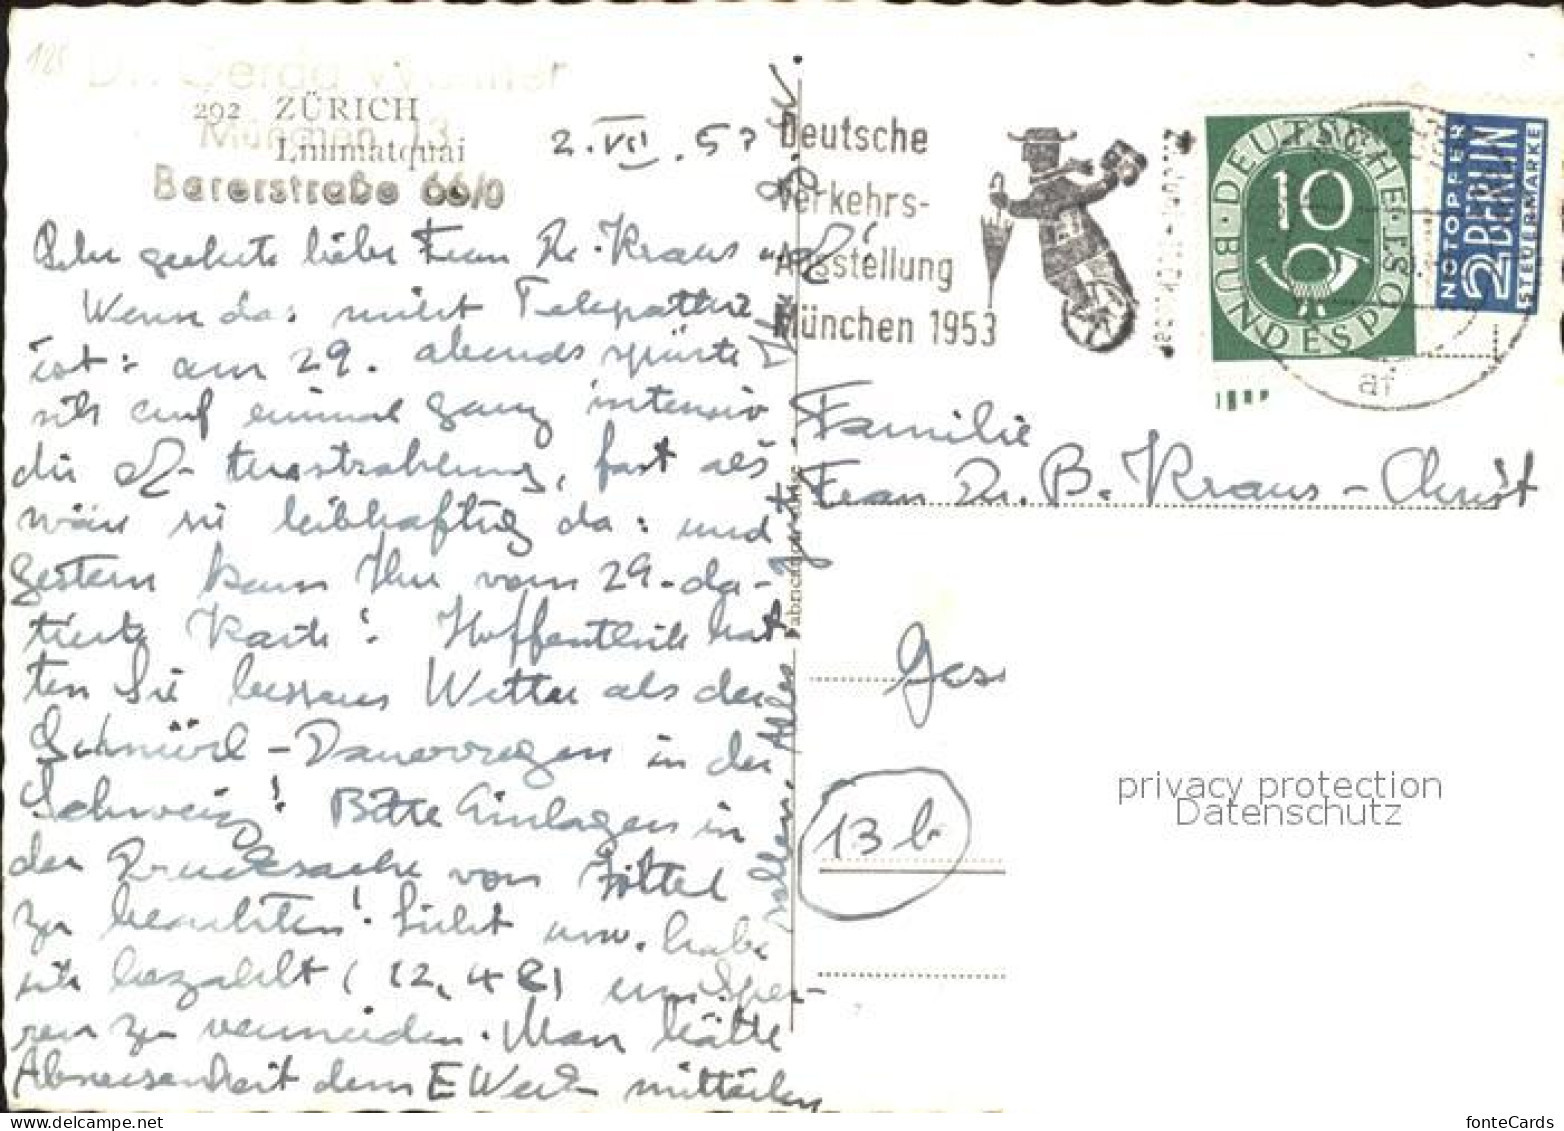 125
Dr. Gerda Walther
292 ZÜRICH
München 13
Limmatquai
Barerstraße 66/0
2. VII. 53
Sehr geehrte liebe Frau Dr. Kraus
Wenn das nicht Telepathie
ist: am 29. abends spürte
ich auf einmal ganz intensiv
die Ausstrahlung, fast als
wären sie leibhaftig da: und
gestern kam Ihre vom 29. da-
tierte Karte! Hoffentlich hat-
ten Sie besseres Wetter als den
Schnürl-Dauerregen in der
Schweiz! Bitte Einlagen in
der Drucksache von
zu beachten! Licht usw. habe
ich bezahlt (12,48) um Sper-
ren zu vermeiden. Man hätte
Abwesenheit dem EWerk mitteilen
sollen. Alles
Deutsche
Verkehrs-
Ausstellung
München 1953
DEUTSCHE BUNDESPOST
10
NOTOPFER
2 BERLIN
STEUERMARKE
af
Familie
Frau Dr. B. Kraus-
13b
privacy protection
Datenschutz
fonteCards